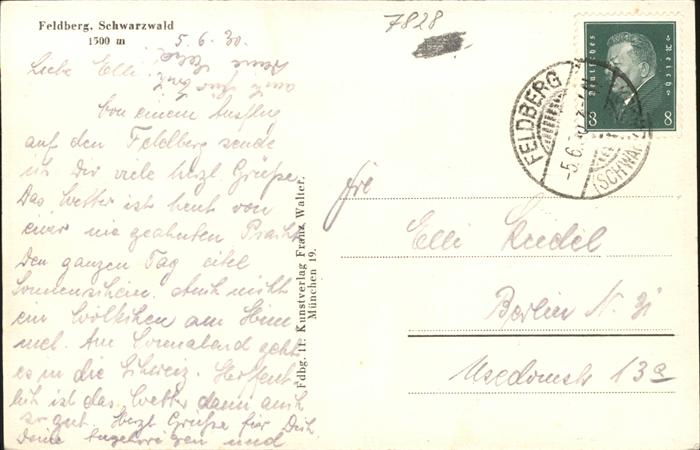 Feldberg, Schwarzwald
1500 m
7828
5.6.30.
Liebe Elli!
Von einem Ausflug
auf den Feldberg sende
ich Dir viele herzl. Grüße.
Das Wetter ist heut von
einer nie geahnten Pracht
Den ganzen Tag eitel
Sonnenschein. Auch nicht
ein Wölkchen am Him
mel. Am Sonnabend geht
es in die Schweiz. Hoffent
lich ist das Wetter dann auch
so gut. Herzl Grüße für Dich
Deine Angehörigen und
Fdbg. 11: Kunstverlag Franz Walter,
München 19.
Deutsches Reich
8 8
FELDBERG
-5.6.30
(SCHWA
Frl
Elli
Berlin N. 31
Usedomstr 13a